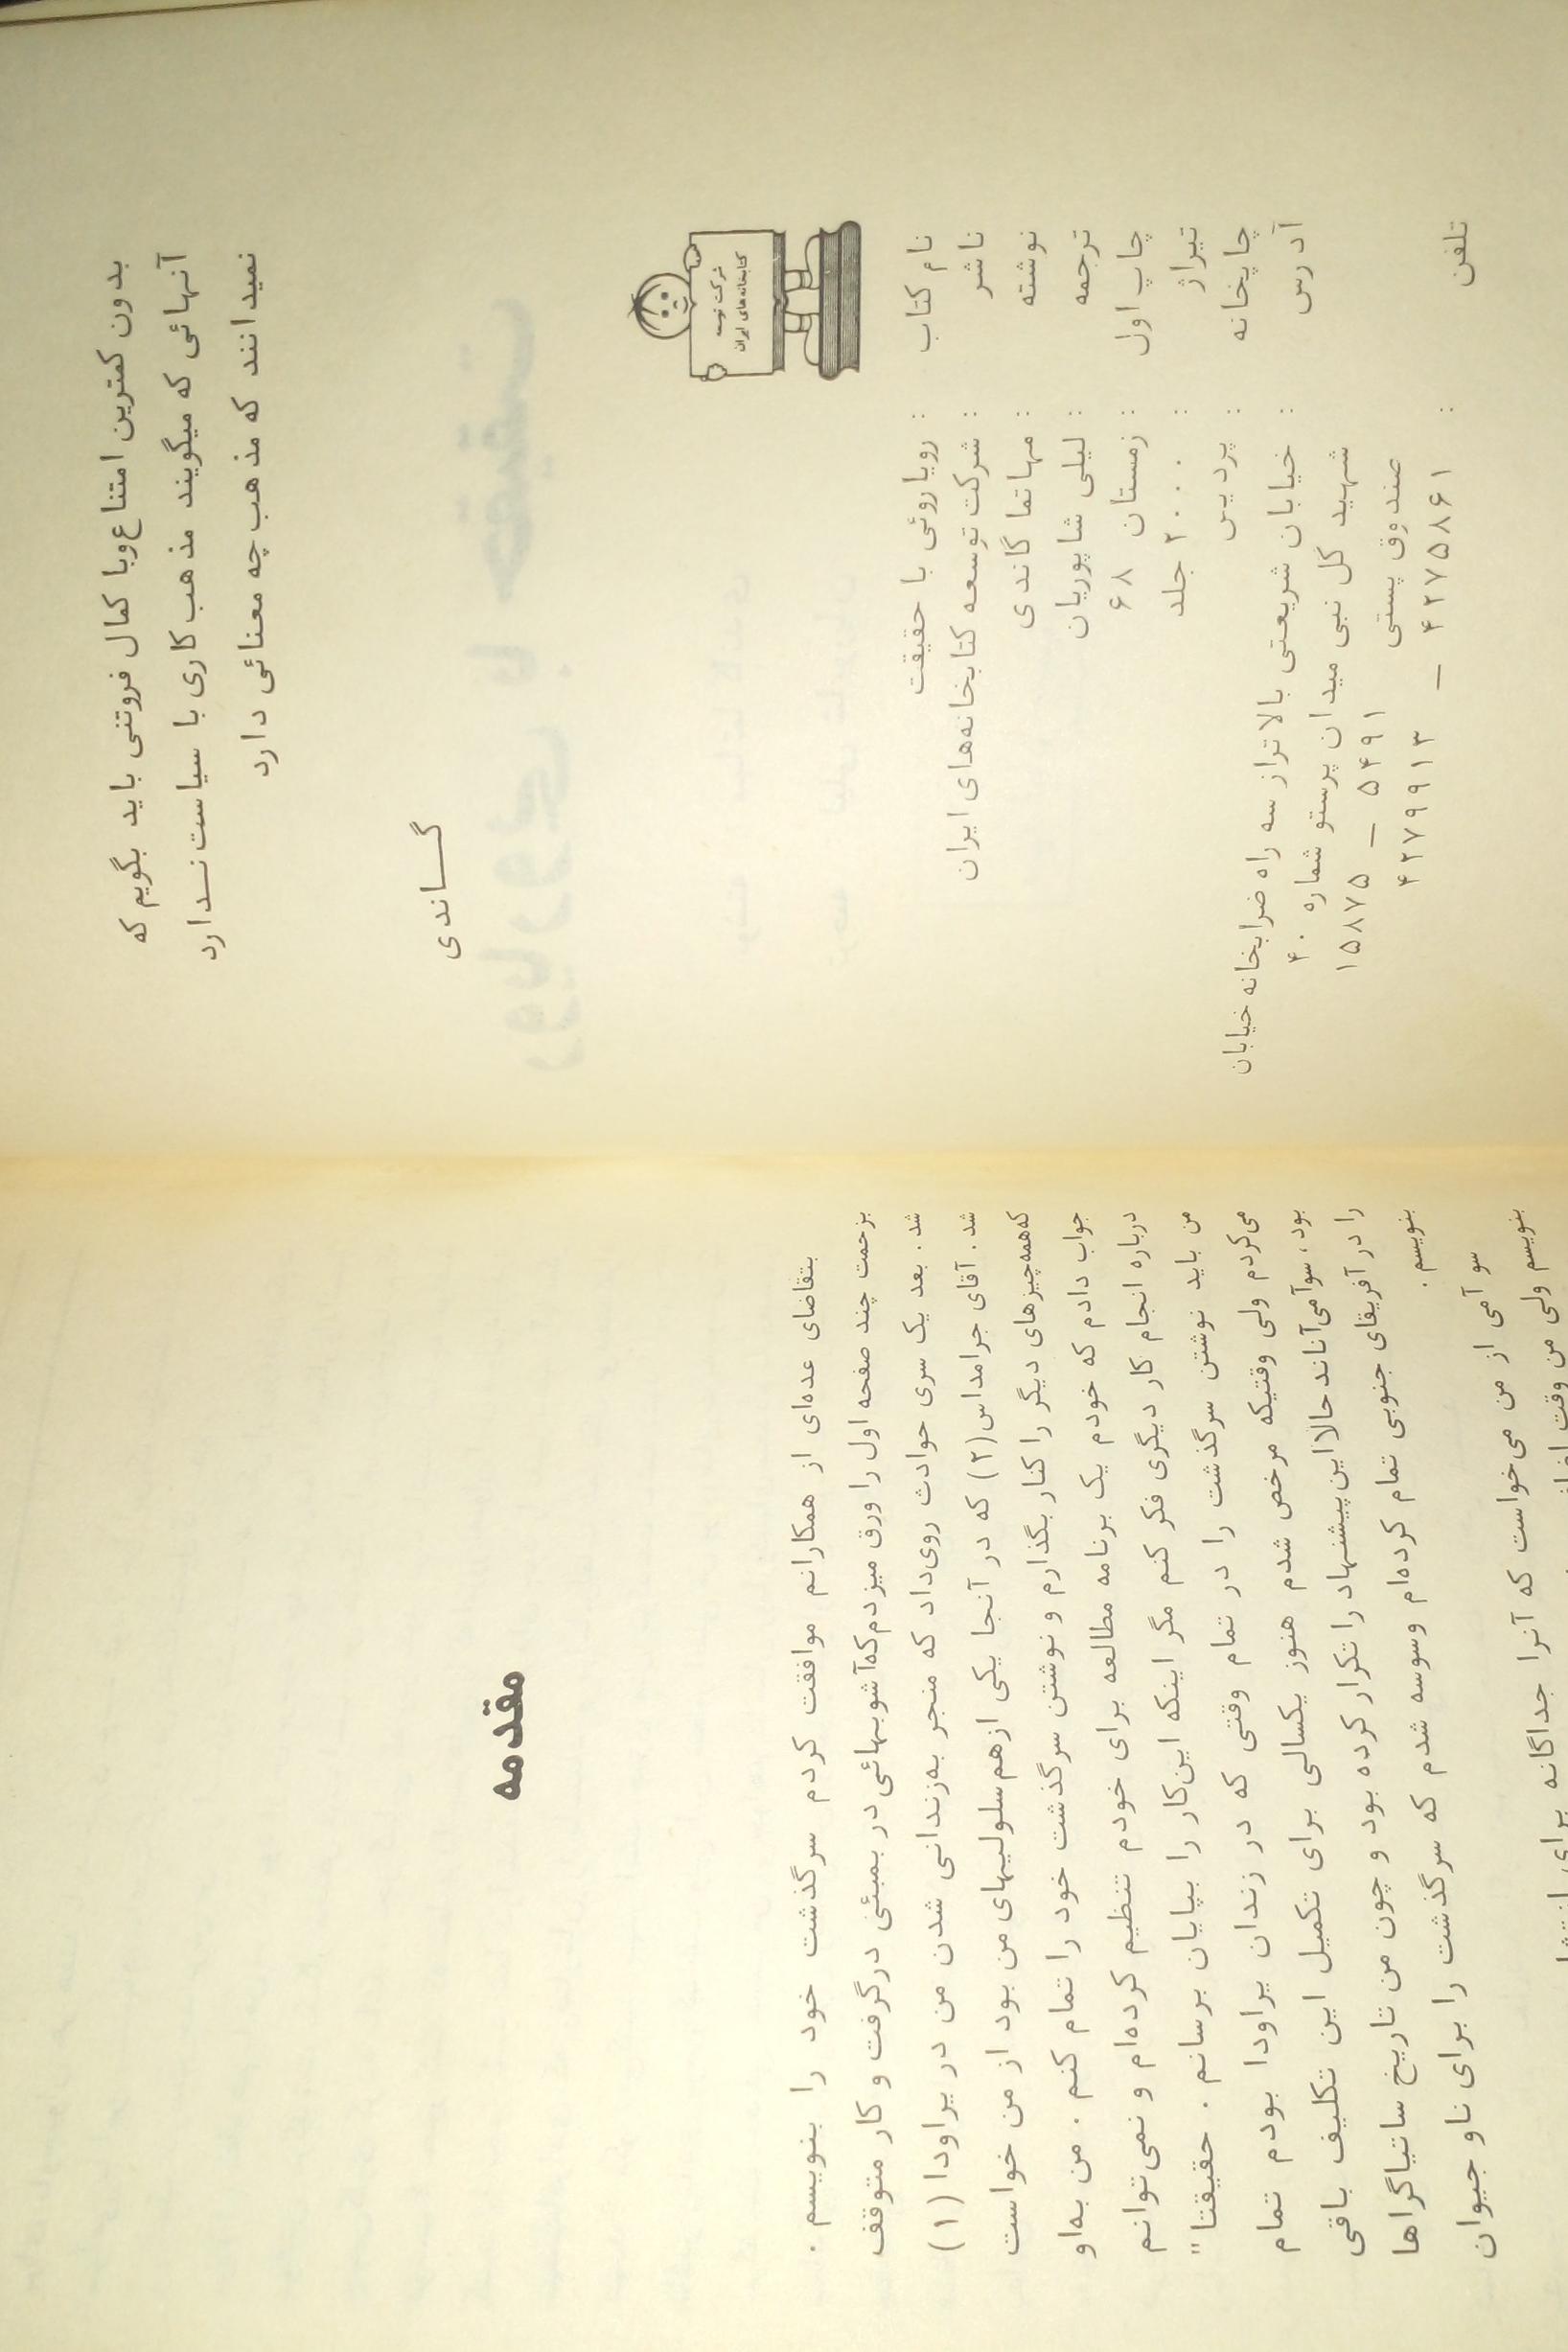 بدون کمترین امتناع وبا کمال فروتنی باید بگویم که
آنهائی که میگویند مذهب کاری با سیاست نـدارد
نمیدانند که مذهب چه معنائی دارد
گـاندی
شرکت توسعه
کتابخانه‌های ایران
نام کتاب : رویاروئی با حقیقت
ناشر : شرکت توسعه کتابخانه‌های ایران
نوشته : مهاتما گاندی
ترجمه : لیلی شاپوریان
چاپ اول : زمستان ۶۸
تیراژ : ۲۰۰۰ جلد
چاپخانه : پردیس
آدرس : خیابان شریعتی بالاتراز سه راه ضرابخانه خیابان
شهید گل نبی میدان پرستو شماره ۴۰
صندوق پستی ۵۴۹۱ — ۱۵۸۷۵
تلفن : ۴۲۷۵۸۶۱ — ۴۲۷۹۹۱۳
مقدمه
بتقاضای عده‌ای از همکارانم موافقت کردم سرگذشت خود را بنویسم .
بزحمت چند صفحه اول را ورق میزدم‌که‌آشوبهائی در بمبئی درگرفت و کار متوقف
شد . بعد یک سری حوادث روی‌داد که منجر به‌زندانی شدن من در یراودا (۱)
شد . آقای جرامداس(۲) که در آنجا یکی ازهم سلولیهای من بود از من خواست
که‌همه‌چیزهای دیگر را کنار بگذارم و نوشتن سرگذشت خود را تمام کنم . من به‌او
جواب دادم که خودم یک برنامه مطالعه برای خودم تنظیم کرده‌ام و نمی‌توانم
درباره انجام کار دیگری فکر کنم مگر اینکه این‌کار را بپایان برسانم . حقیقتا"
من باید نوشتن سرگذشت را در تمام وقتی که در زندان یراودا بودم تمام
می‌کردم ولی وقتیکه مرخص شدم هنوز یکسالی برای تکمیل این تکلیف باقی
بود، سوآمی‌آناند حالااین‌پیشنهاد را تکرار کرده بود و چون من تاریخ ساتیاگراها
را در آفریقای جنوبی تمام کرده‌ام وسوسه شدم که سرگذشت را برای ناو جیوان
بنویسم .
سوآمی از من می‌خواست که آنرا جداگانه برای
بنویسم ولی من وقت